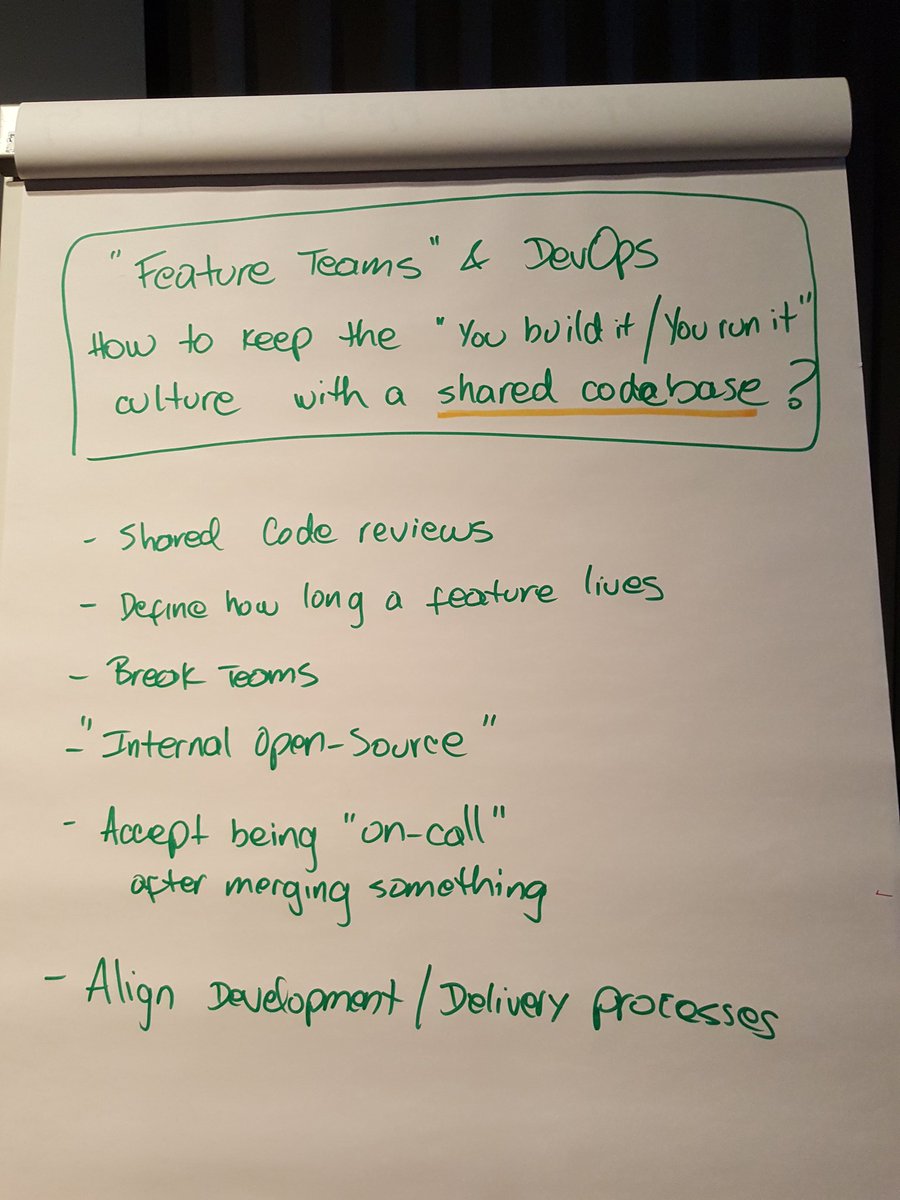 "Feature Teams" & DevOps
How to keep the "You build it/You run it"
culture with a shared codebase?
- Shared Code reviews
- Define how long a feature lives
- Break Teams
- "Internal Open-Source"
- Accept being "on-call"
after merging something
- Align Development/Delivery processes